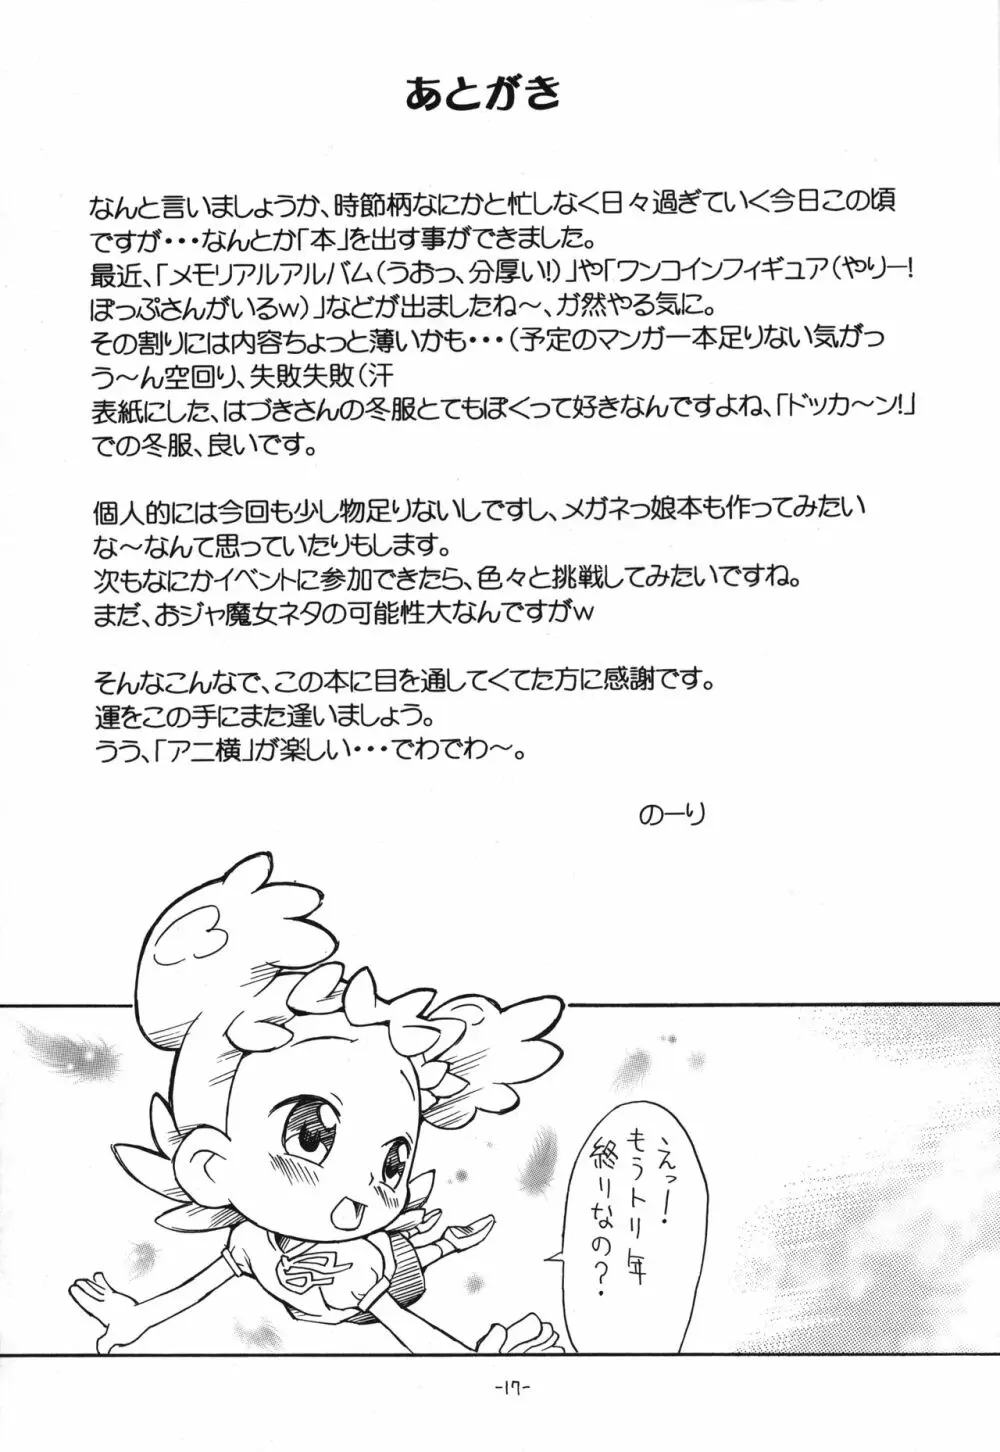 あとがき
なんと言いましょうか、時節柄なにかと忙しなく日々過ぎていく今日この頃
ですが・・・なんとか「本」を出す事ができました。
最近、「メモリアルアルバム(うおっ、分厚い!)」や「ワンコインフィギュア(やりー!
ぽっぷさんがいるw)」などが出ましたね～、が然やる気に。
その割りには内容ちょっと薄いかも・・・(予定のマンガ一本足りない気がっ
う～ん空回り、失敗失敗(汗
表紙にした、はづきさんの冬服とてもぽくって好きなんですよね、「ドッカ～ン!」
での冬服、良いです。
個人的には今回も少し物足りないしですし、メガネっ娘本も作ってみたい
な～なんて思っていたりもします。
次もなにかイベントに参加できたら、色々と挑戦してみたいですね。
まだ、おジャ魔女ネタの可能性大なんですがw
そんなこんなで、この本に目を通してくてた方に感謝です。
運をこの手にまた逢いましょう。
うう、「アニ横」が楽しい・・・でわでわ～。
のーり
えっ!
もうトリ年
終りなの?
-17-